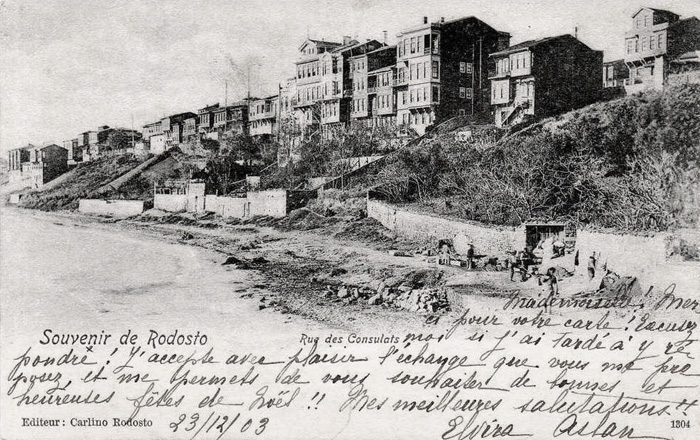 Mademoiselle! Mer
Souvenir de Rodosto
Rue des Consulats
ci pour votre carte! Excusez
moi si j'ai tardé à y ré
pondre! J'accepte avec plaisir l'échange que vous me pro
posez, et me permets de vous souhaiter de bonnes et
heureuses fêtes de Noël!! Mes meilleures salutations!!
Editeur: Carlino Rodosto
23/12/03
Elvira Aslan
1304